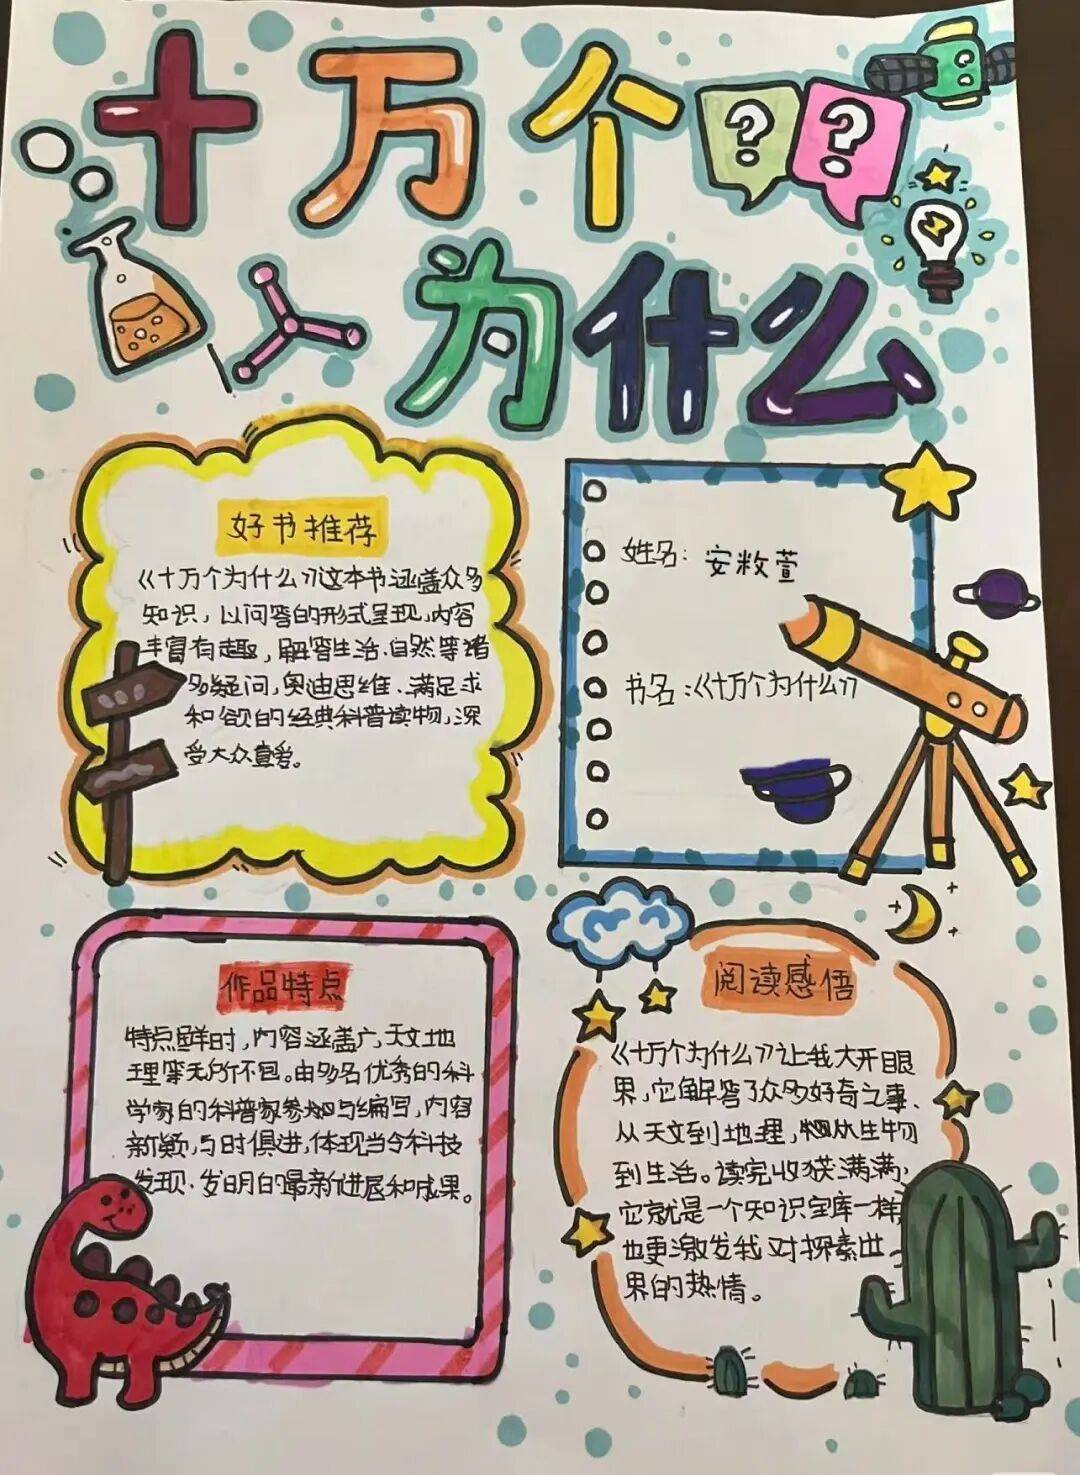 十万个??
为什么
好书推荐
《十万个为什么》这本书涵盖众多
知识，以问答的形式呈现，内容
丰富有趣，解答生活.自然等诸
多疑问，奥迪思维.满足求
和欲的经典科普读物，深
受大众喜爱。
姓名：安敉萱
书名：《十万个为什么》
作品特点
特点鲜时，内容涵盖广，天文地
理等无所不包。由多名优秀的科
学家的科普家参加与编写，内容
新颖，与时俱进，体现当今科技
发现.发明的最新进展和成果。
阅读感悟
《十万个为什么》让我大开眼
界，它解答了众多好奇之事.
从天文到地理，从生物
到生活。读完收获满满，
它就是一个知识宝库一样，
也更激发我对探索世
界的热情。